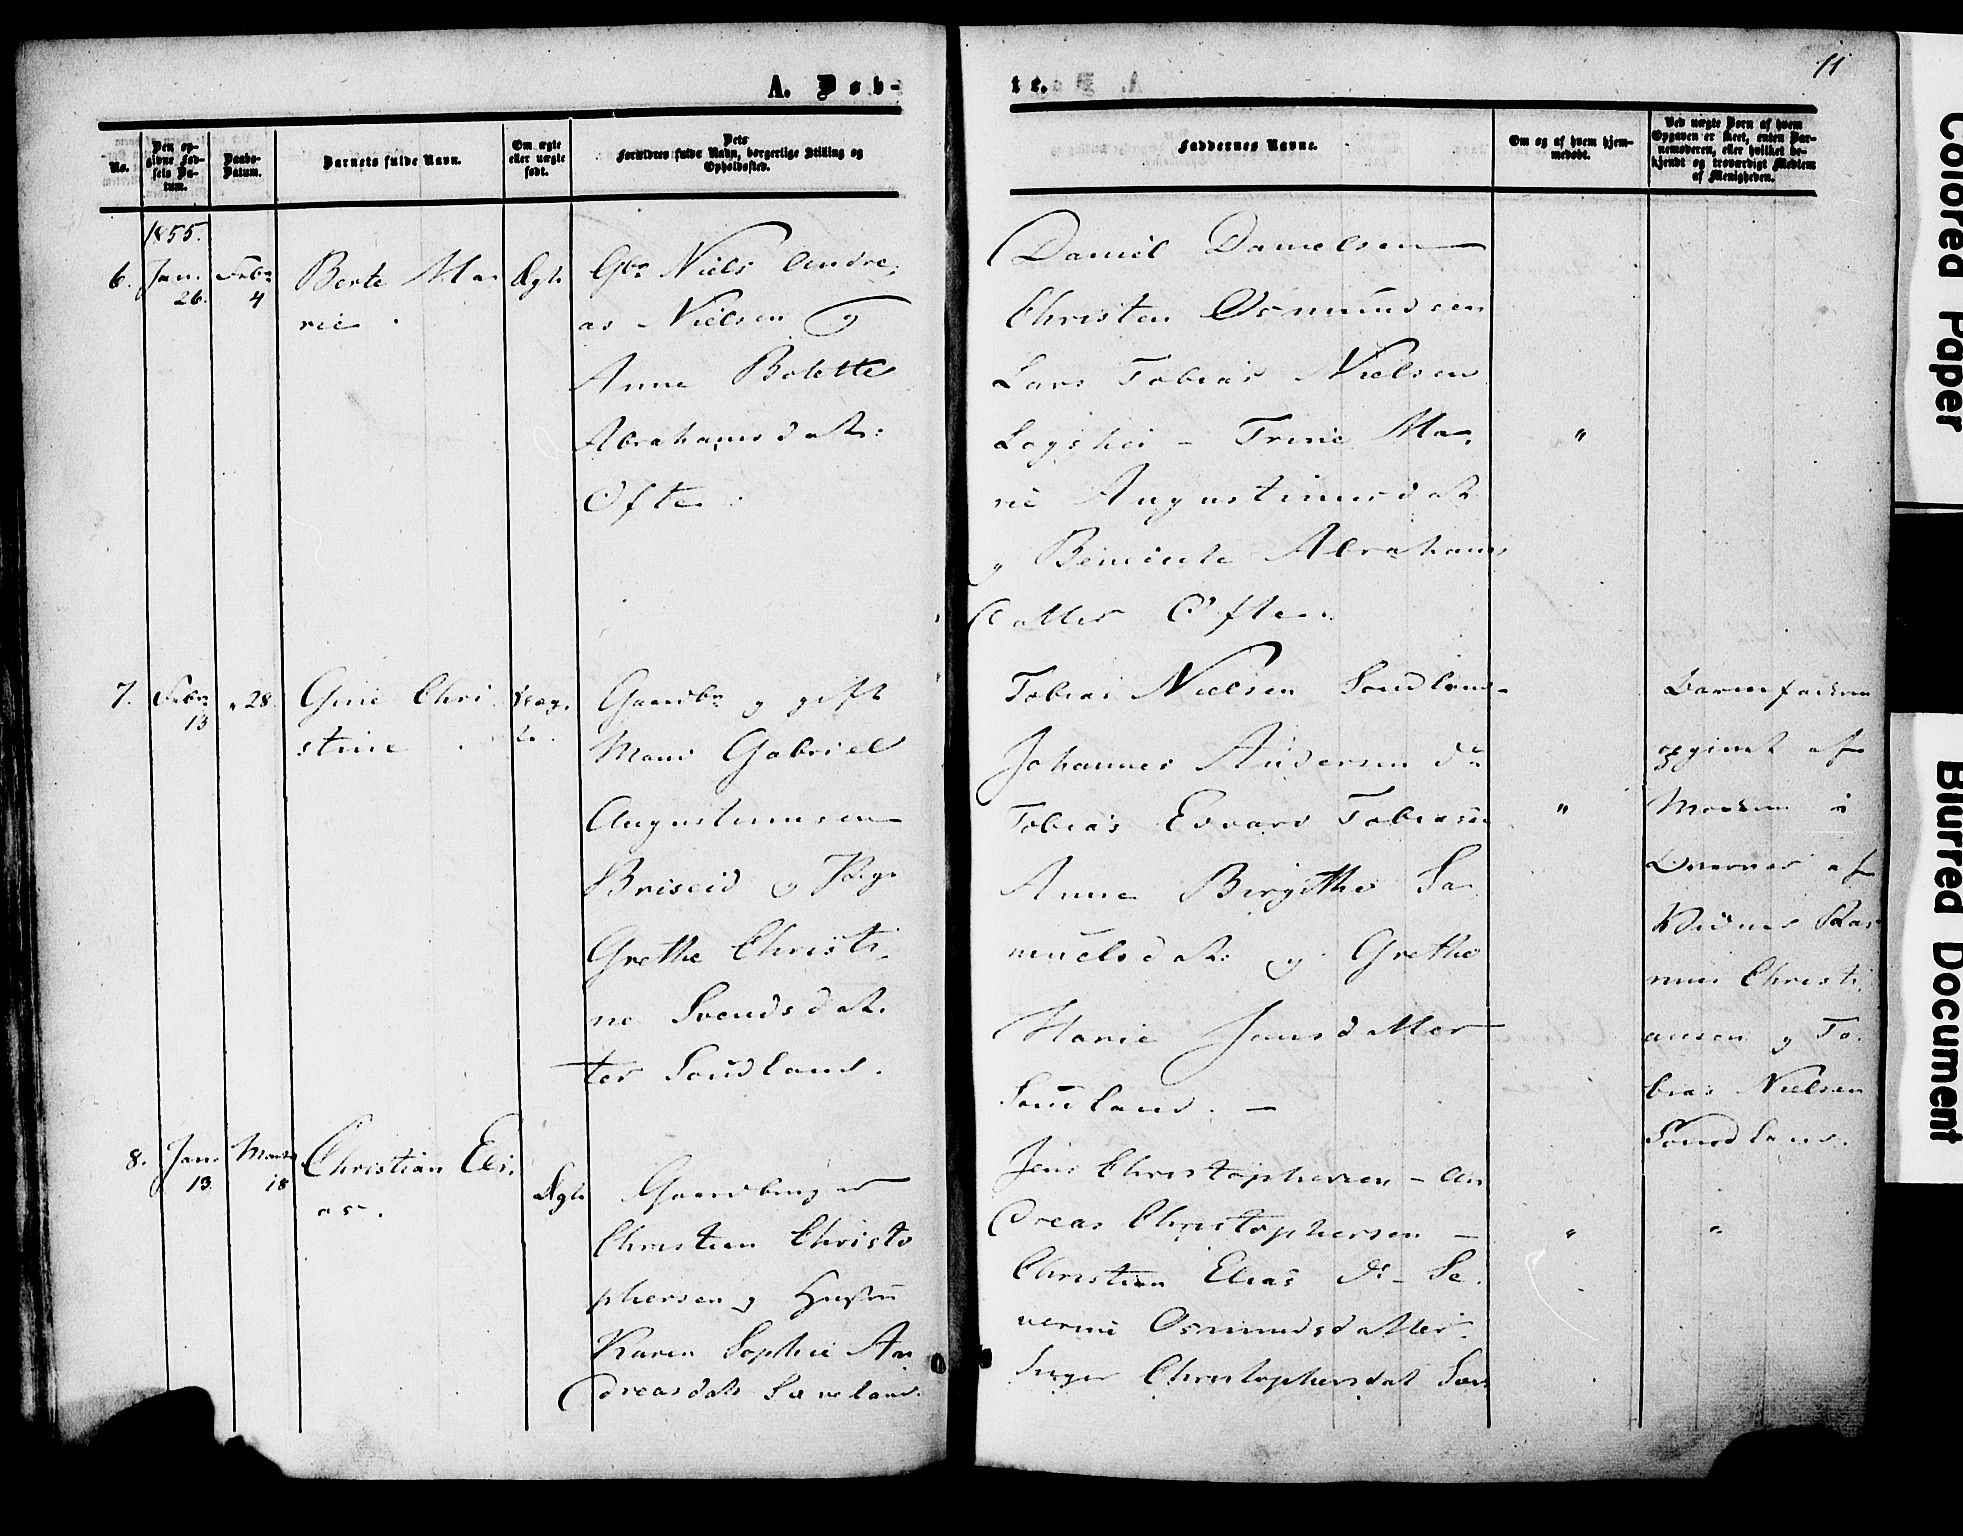 11
A. Døb-
te.
No.
Den op-
givne Fød-
sels Da-
tum.
Daabs-
Datum.
Barnets fulde Navn.
Om ægte
eller uægte
født.
Dets
Forældres fulde Navn, borgerlige Stilling og
Opholdssted.
Faddernes Navne.
Om og af hvem hjem-
medøbt.
Ved uægte Børn af hvem
Opgaven er skeet, enten Bar-
nemoderen, eller hvilket be-
kjendt og troværdigt Medlem
af Menigheden.
1855.
6.
Jan.
26.
Febr
4
Berte Ma-
rie
Ægte
Gbr Niels Andre-
as Nielsen og
Anne Bolette
Abrahamsdatr:
Ofte
Daniel Danielsen
Christen Osmundsen
Lars Tobias Nielsen
Trine Ma-
rie Augustinusdatr
og Abrahams
datter Ofte
"
7.
Febr
13
" 28.
Gine Chri-
stine
Uæg-
te.
Gaardbr og gift
Mand Gabriel
Augustinusen
Briseid og Pige
Grethe Christi-
ne Svendsdat-
ter Soudland.
Tobias Nielsen Soudland
Johannes Andersen do
Tobias Edvard Tobiasen
Anne Birgithe Sa-
muelsdatr og Grethe
Marie Jensdatter
Soudland. —
"
Barnefaderen
opgivet af
Moderen i
af
Ras-
mus Christi-
ansen og To-
bias Nielsen
Soudland.
8.
Jan.
13.
Marts
18
Christian Eli-
as.
Ægte
Gaardbruger
Christen Christo
phersen og Hustru
Karen Sophie An
dreasdatr
Jens Christophersen - An
dreas Christophersen —
Christian Elias do - Se-
verine Osmundsdatter
Christophersdat
"
"
Colored Paper
Blurred Document